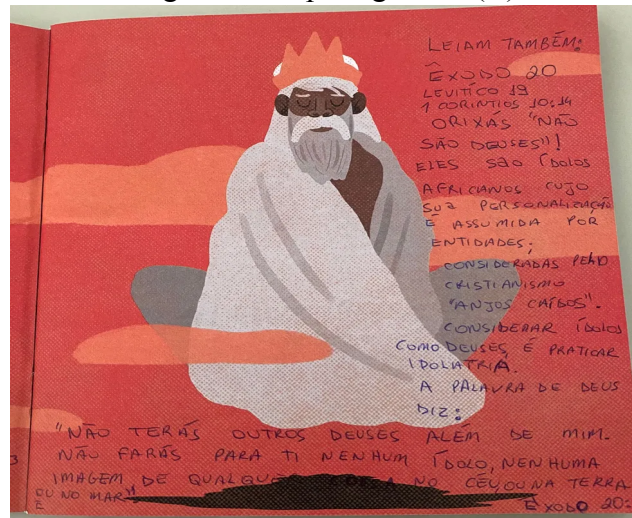 LEIAM TAMBÉM:
ÊXODO 20
LEVITÍCO 19
1 CORINTIOS 10:14
ORIXÁS "NÃO
SÃO DEUSES"!
ELES SÃO ÍDOLOS
AFRICANOS CUJO
SUA PERSONALIZAÇÃO
É ASSUMIDA POR
ENTIDADES;
CONSIDERADAS PELO
CRISTIANISMO
"ANJOS CAÍDOS".
CONSIDERAR ÍDOLOS
COMO DEUSES É PRATICAR
IDOLATRIA.
A PALAVRA DE DEUS
DIZ:
"NÃO TERÁS OUTROS DEUSES ALÉM DE MIM.
NÃO FARÁS PARA TI NENHUM ÍDOLO, NENHUMA
IMAGEM DE QUALQUER NO CÉU, OU NA TERRA
OU NO MAR"
ÊXODO 20: